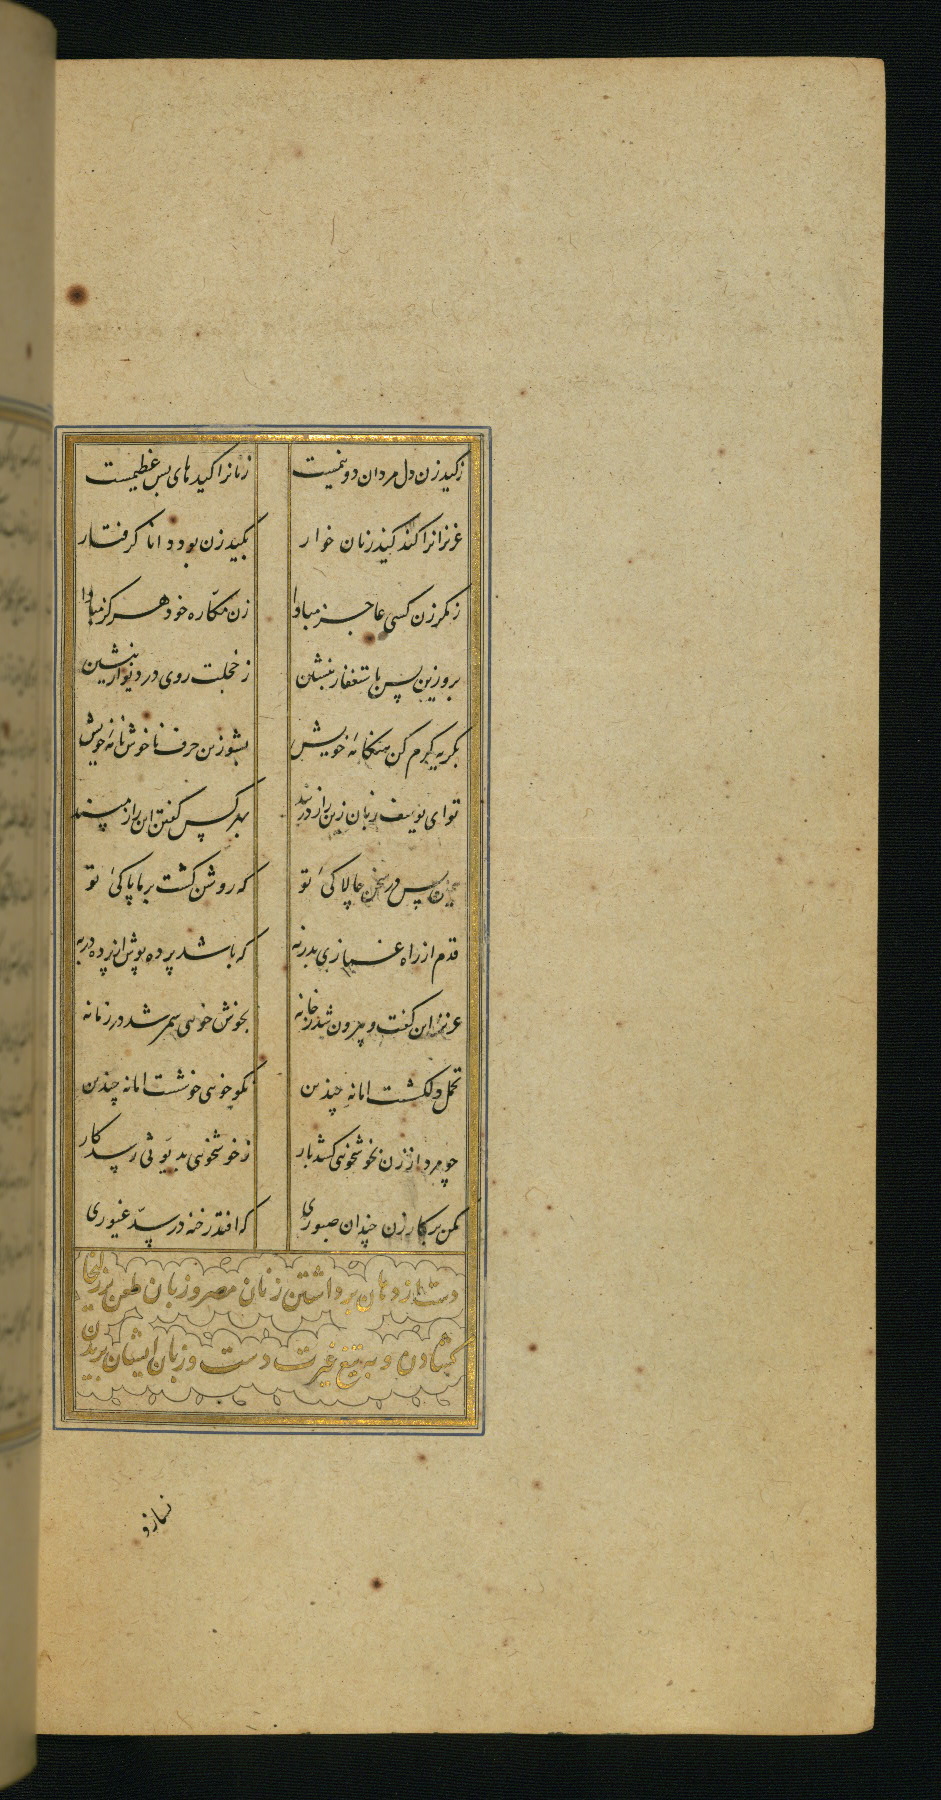 زکید زن دل مردان دو نیمست زنانرا کیدهای بس عظیمست
عزیزانرا کند کید زنان خوار بکید زن بود دانا کرفتار
ز مکر زن کسی عاجز مبادا زن مکّاره خود هرکز مبادا
برو زین پس باستغفار بنشین ز خجلت روی در دیوار بنشین
بکریه کرم کن هنکامهٔ خویش بشو زین حرف ناخوش نامهٔ خویش
تو ای یوسف زبان زین راز در بند بهر کس کفتن این راز مپسند
همین بس در سخن چالاکیٔ تو که روشن کشت بر ما پاکیٔ تو
قدم از راه غمازی بدر نه که باشد پرده پوش از پرده در به
عزیز این کفت و بیرون شد ز خانه بخوش خویی سمر شد در زمانه
تحمل دلکشست اما نه چندین نکو خویی خوشست اما نه چندین
چو مرد از زن بخوشخویی کشد بار ز خوشخویی به بدرویی رسد کار
مکن بر کار زن چندان صبوری که افتد رخنه در سدّ غیوری
دست از دهان برداشتن زنان مصر و زبان طعن بر زلیخا
کشادن و به تیغ غیرت دست و زبان ایشان بریدن
نسازد